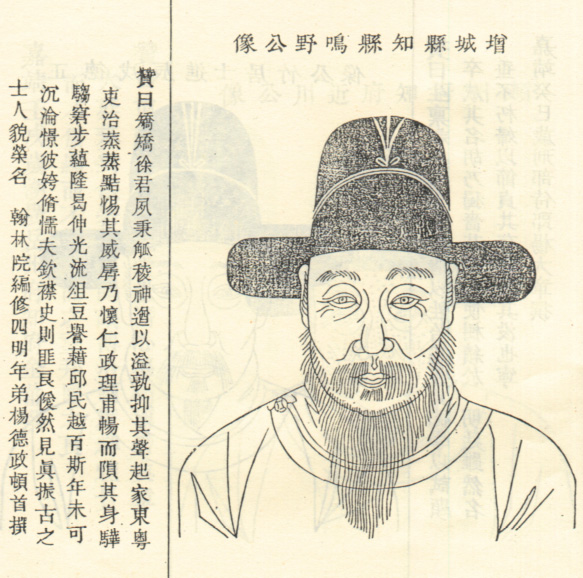 增城縣知縣鳴野公像
贊曰矯矯徐君夙秉觚稜神遒以溢孰抑其聲起家東粤
吏治蒸蒸黠惕其威孱乃懷仁政理甫暢而隕其身驊
騮窘步蘊隆曷伸光流俎豆譽藉邱民越百斯年未可
沉淪憬彼姱脩懦夫欽襟史則匪良僾然見眞振古之
士人貌榮名 翰林院編修四明年弟楊德政頓首撰